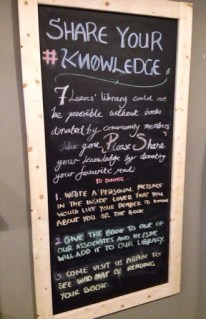 SHARE YOUR
# KNOWLEDGE
7 Leaves' library could not
be possible without books
donated by community members
like you. Please Share
your knowledge by donating
your favorite read
TO DONATE:
1. WRITE A PERSONAL MESSAGE
IN THE INSIDE COVER THAT YOU
WOULD LIKE YOUR READER TO KNOW
ABOUT YOU OR THE BOOK.
2. GIVE THE BOOK TO ONE OF
OUR ASSOCIATES AND HE/SHE
WILL ADD IT TO OUR LIBRARY.
3. COME VISIT US AGAIN TO
SEE WHO MAY BE READING
YOUR BOOK.